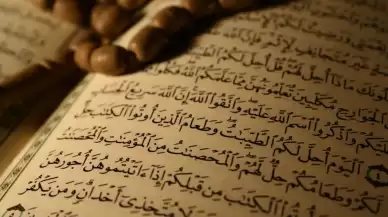 غَيْرَ مُتَجَانِفٍ لِإِثْمٍ فَإِنَّ اللَّهَ
مَاذَا أُحِلَّ لَهُمْ قُلْ أُحِلَّ لَكُمُ
الْجَوَارِحِ مُكَلِّبِينَ تُعَلِّمُونَهُنَّ مِمَّا عَلَّمَكُمُ اللَّهُ فَكُلُوا
عَلَيْكُمْ وَاذْكُرُوا اسْمَ اللَّهِ عَلَيْهِ وَاتَّقُوا اللَّهَ إِنَّ اللَّهَ سَرِيعُ الْحِسَابِ
الْيَوْمَ أُحِلَّ لَكُمُ الطَّيِّبَٰتُ وَطَعَامُ الَّذِينَ أُوتُوا الْكِتَٰبَ
لَكُمْ وَطَعَامُكُمْ حِلٌّ لَهُمْ وَالْمُحْصَنَٰتُ مِنَ الْمُؤْمِنَٰتِ وَالْمُحْصَنَٰتُ
أُوتُوا الْكِتَٰبَ مِنْ قَبْلِكُمْ إِذَا ءَاتَيْتُمُوهُنَّ أُجُورَهُنَّ
مُتَّخِذِي أَخْدَانٍ وَمَنْ يَكْفُرْ